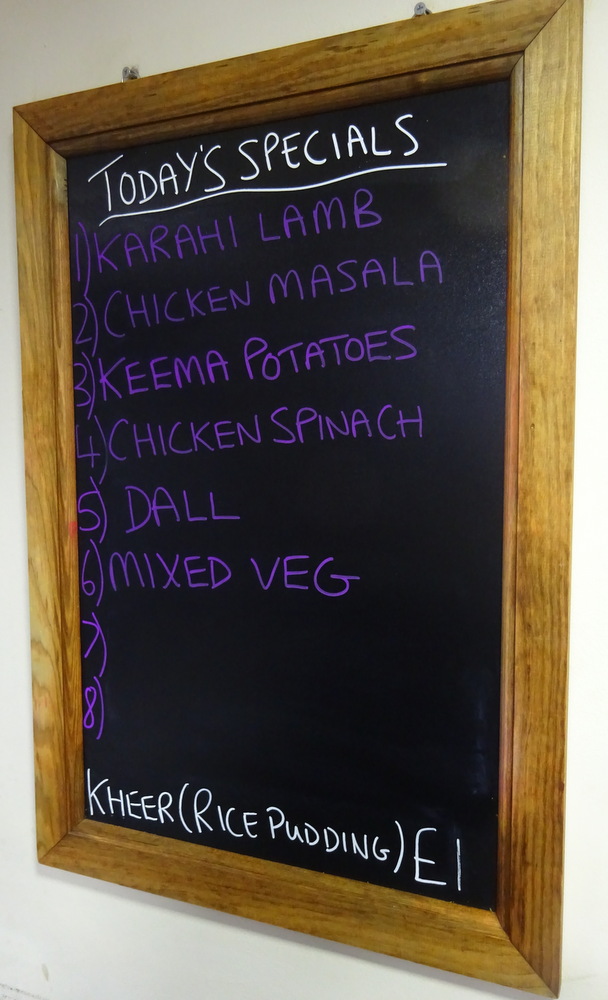 TODAY'S SPECIALS
1) KARAHI LAMB
2) CHICKEN MASALA
3) KEEMA POTATOES
4) CHICKEN SPINACH
5) DALL
6) MIXED VEG
7)
8)
KHEER (RICE PUDDING) £1